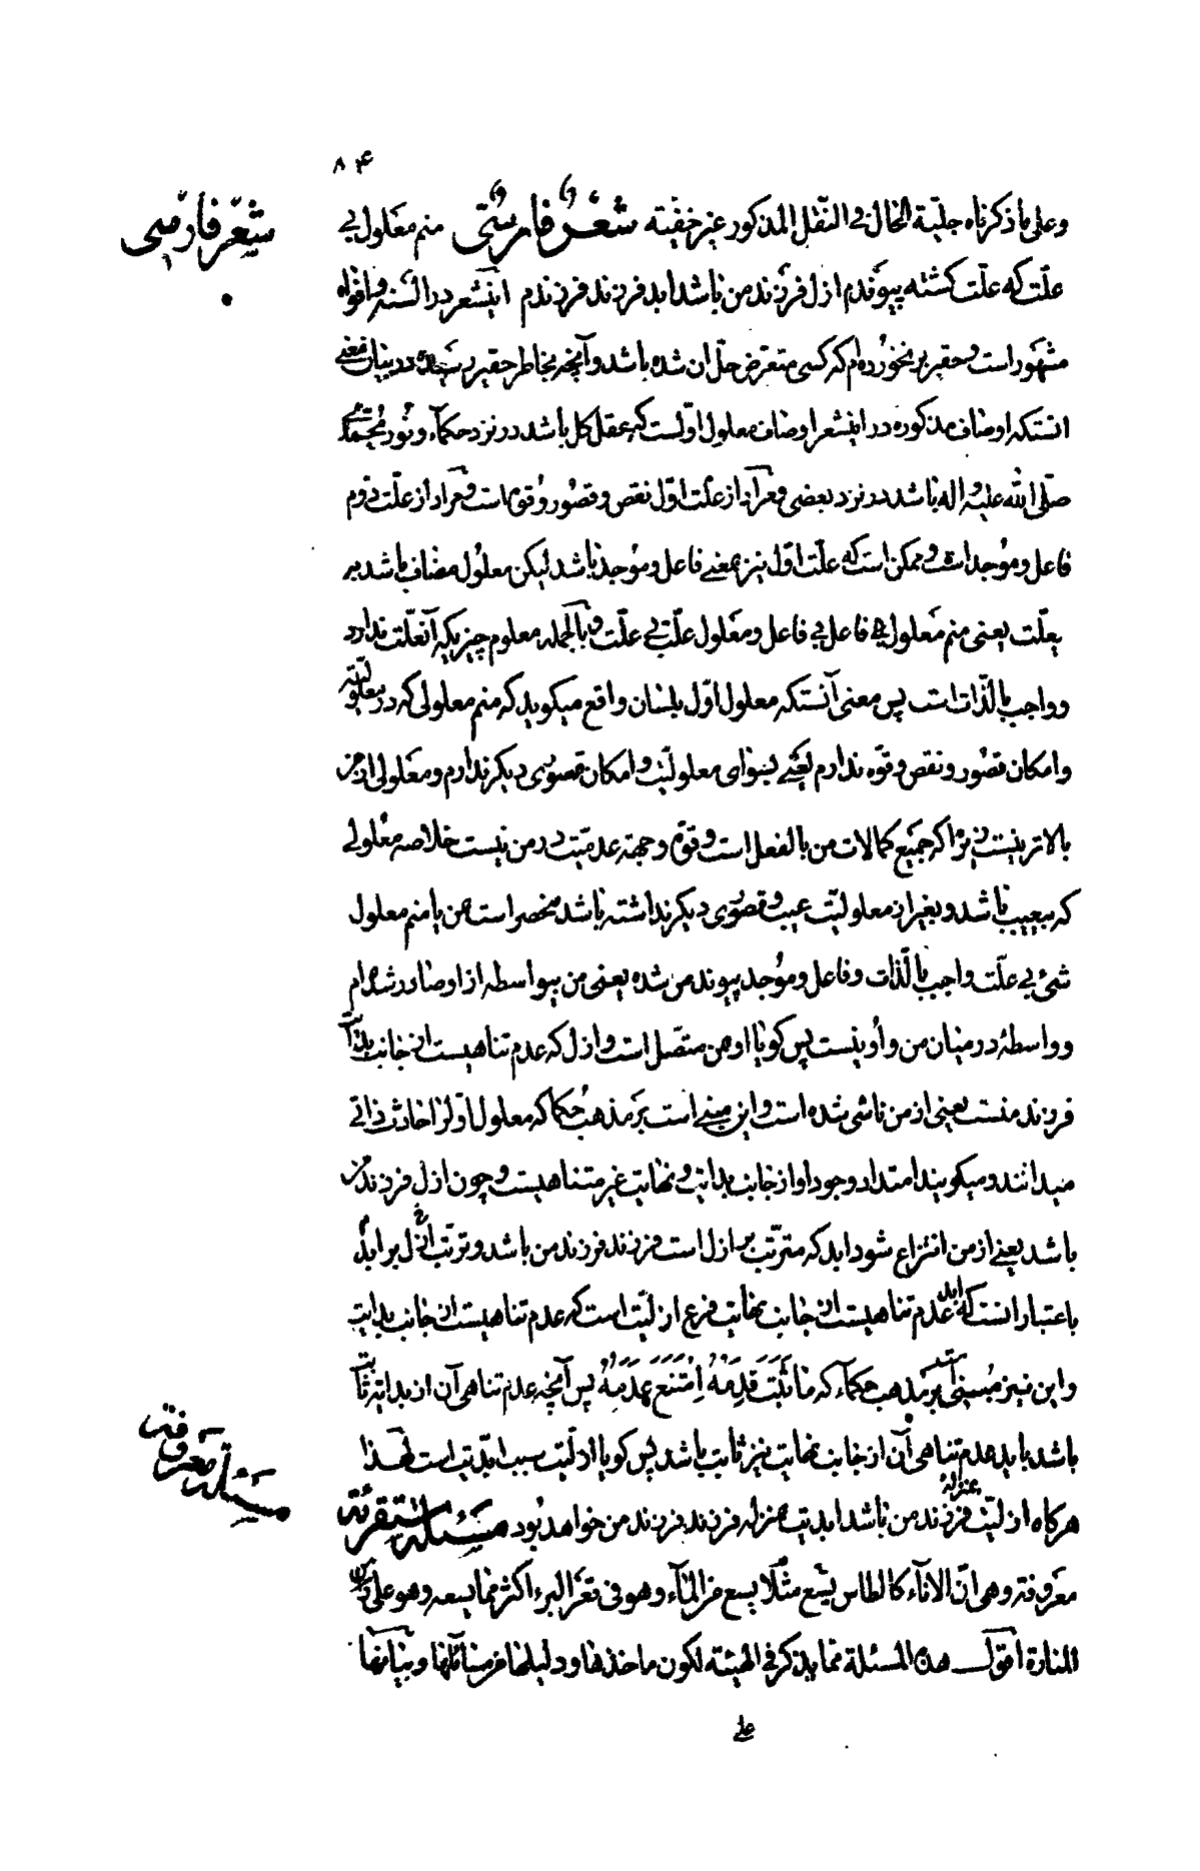 ۸۴
شعر فارسی
وعلی ما ذکرناه جلیة الحال فی النقل المذکور غیر خفیته شعر فارسی منم معلول بی
علّت که علّت کشته پیوندم ازل فرزند من باشد ابد فرزند فرزندم اینشعر در السنه و افواه
مشهور است و حقیر بر نخورده‌ام که کسی متعرض حل آن شده باشد و آنچه بخاطر حقیر رسیده در بیان معنی
انستکه اوصاف مذکوره در اینشعر اوصاف معلول اولست که عقل کل باشد در نزد حکماء و نور محمدی
صلی الله علیه و اله باشد در نزد بعضی و مراد از علّت اول نقص و قصور و قوه است و مراد از علّت دوم
فاعل و موجد است و ممکن است که علّت اول نیز بمعنی فاعل و موجد باشد لیکن معلول مضاف باشد بر
بیعلّت یعنی منم معلول بی فاعل و معلول علّت بی علّت و بالجمله معلوم چیزیکه آنعلّت ندارد
و واجب بالذات است پس معنی آنستکه معلول اول بلسان واقع میکوید که منم معلولی که در معلولیّت
و امکان قصور و نقص و قوه ندارم یعنی بسوای معلولیّت و امکان قصوری دیکر ندارم و معلولی از من
بالاتر نیست زیرا که جمیع کمالات من بالفعل است و قوه و جهة عدمیّت در من نیست خلاصه معلولی
که بیعیب باشد و بغیر از معلولیّت عیب و قصوری دیکر نداشته باشد منحصر است بمن یا منم معلول
شیء بی علّت واجب بالذات و فاعل و موجد پیوند من شده یعنی من بیواسطه از او صادر شده‌ام
و واسطهٔ در میان من و او نیست پس کویا او بمن متصل است و ازل که عدم تناهیست از جانب بدایت
فرزند منست یعنی از من ناشی شده است و این مبنی است بر مذهب حکما که معلول اول را حادث ذاتی
میدانند و میکویند امتداد وجود او از جانب بدایت و نهایت غیر متناهیست و چون ازل فرزند من
باشد یعنی از من انتزاع شود ابد که مترتب بر ازل است فرزند فرزند من باشد و ترتب ازل بر ابد
باعتبار انست که ابد عدم تناهیست از جانب نهایت فرع ازلیّت است که عدم تناهیست از جانب بدایت
و این نیز مبنی است بر مذهب حکماء که ما ثَبَتَ قِدَمُهُ اِمْتَنَعَ عَدَمُهُ پس آنچه عدم تناهی آن از بدایة ثابت
باشد باید عدم تناهی آن از جانب نهایت نیز ثابت باشد پس کویا ازلیّت سبب ابدیّت است لهذا
هرکاه ازلیّت بمنزلهٔ فرزند من باشد ابدیّت بمنزله فرزند فرزند من خواهد بود مسئلة متفرقة
مسئلة معروفة
معروفة وهی انّ الاناء کالطاس یسع مثلا یسع من الماء وهو فی قعر البرء اکثر مما یسعه وهو علی راس
المنارة اقول هذه المسئلة مما یذکر فی الهیئته لکون ماخذها ودلیلها من مسائلها وبیانها
علی